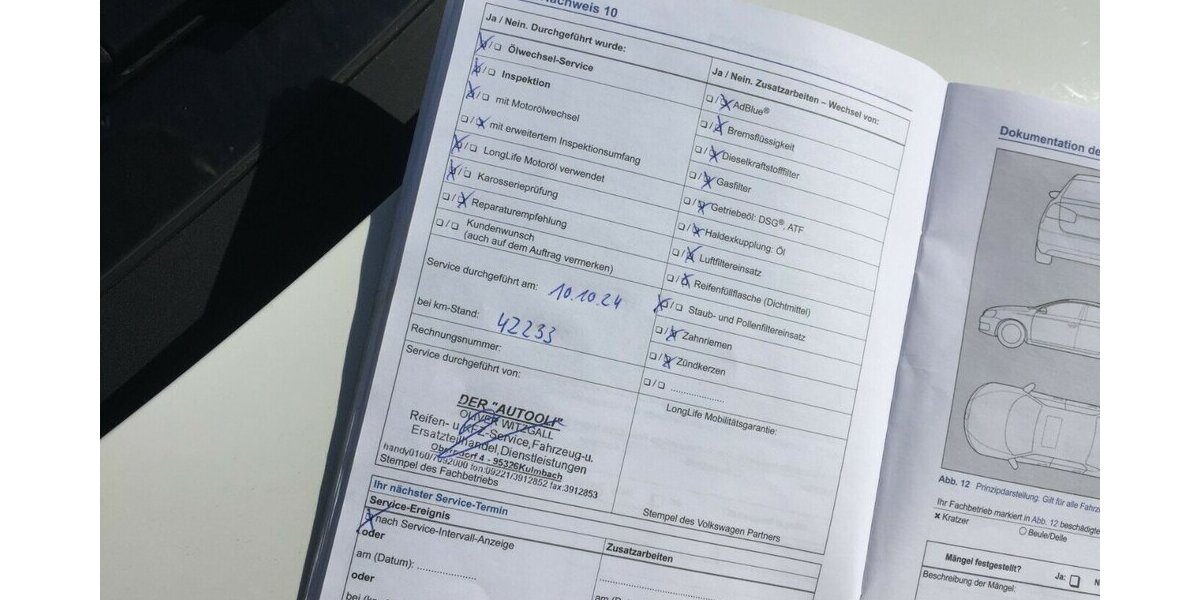 achweis 10
Ja / Nein. Durchgeführt wurde:
Ölwechsel-Service
Inspektion
mit Motorölwechsel
mit erweitertem Inspektionsumfang
LongLife Motoröl verwendet
Karosserieprüfung
Reparaturempfehlung
Kundenwunsch
(auch auf dem Auftrag vermerken)
Service durchgeführt am: 10.10.24
bei km-Stand: 42233
Rechnungsnummer:
Service durchgeführt von:
DER "AUTOOLI"
OLIVER WITZGALL
Reifen- u. KFZ-Service, Fahrzeug-u.
Ersatzteilhandel, Dienstleistungen
Oberndorf 4 - 95326 Kulmbach
fon:09221/3912852 fax:3912853
Stempel des Fachbetriebs
Ja / Nein. Zusatzarbeiten – Wechsel von:
AdBlue®
Bremsflüssigkeit
Dieselkraftstofffilter
Gasfilter
Getriebeöl: DSG®, ATF
Haldexkupplung: Öl
Luftfiltereinsatz
Reifenfüllflasche (Dichtmittel)
Staub- und Pollenfiltereinsatz
Zahnriemen
Zündkerzen
LongLife Mobilitätsgarantie:
Stempel des Volkswagen Partners
Ihr nächster Service-Termin
Service-Ereignis
nach Service-Intervall-Anzeige
oder
am (Datum):
oder
bei (k
Zusatzarbeiten
am (Datu
Dokumentation de
Abb. 12 Prinzipdarstellung: Gilt für alle Fahrze
Ihr Fachbetrieb markiert in Abb. 12 beschädigte
Kratzer
Beule/Delle
Mängel festgestellt? Ja: N
Beschreibung der Mängel: